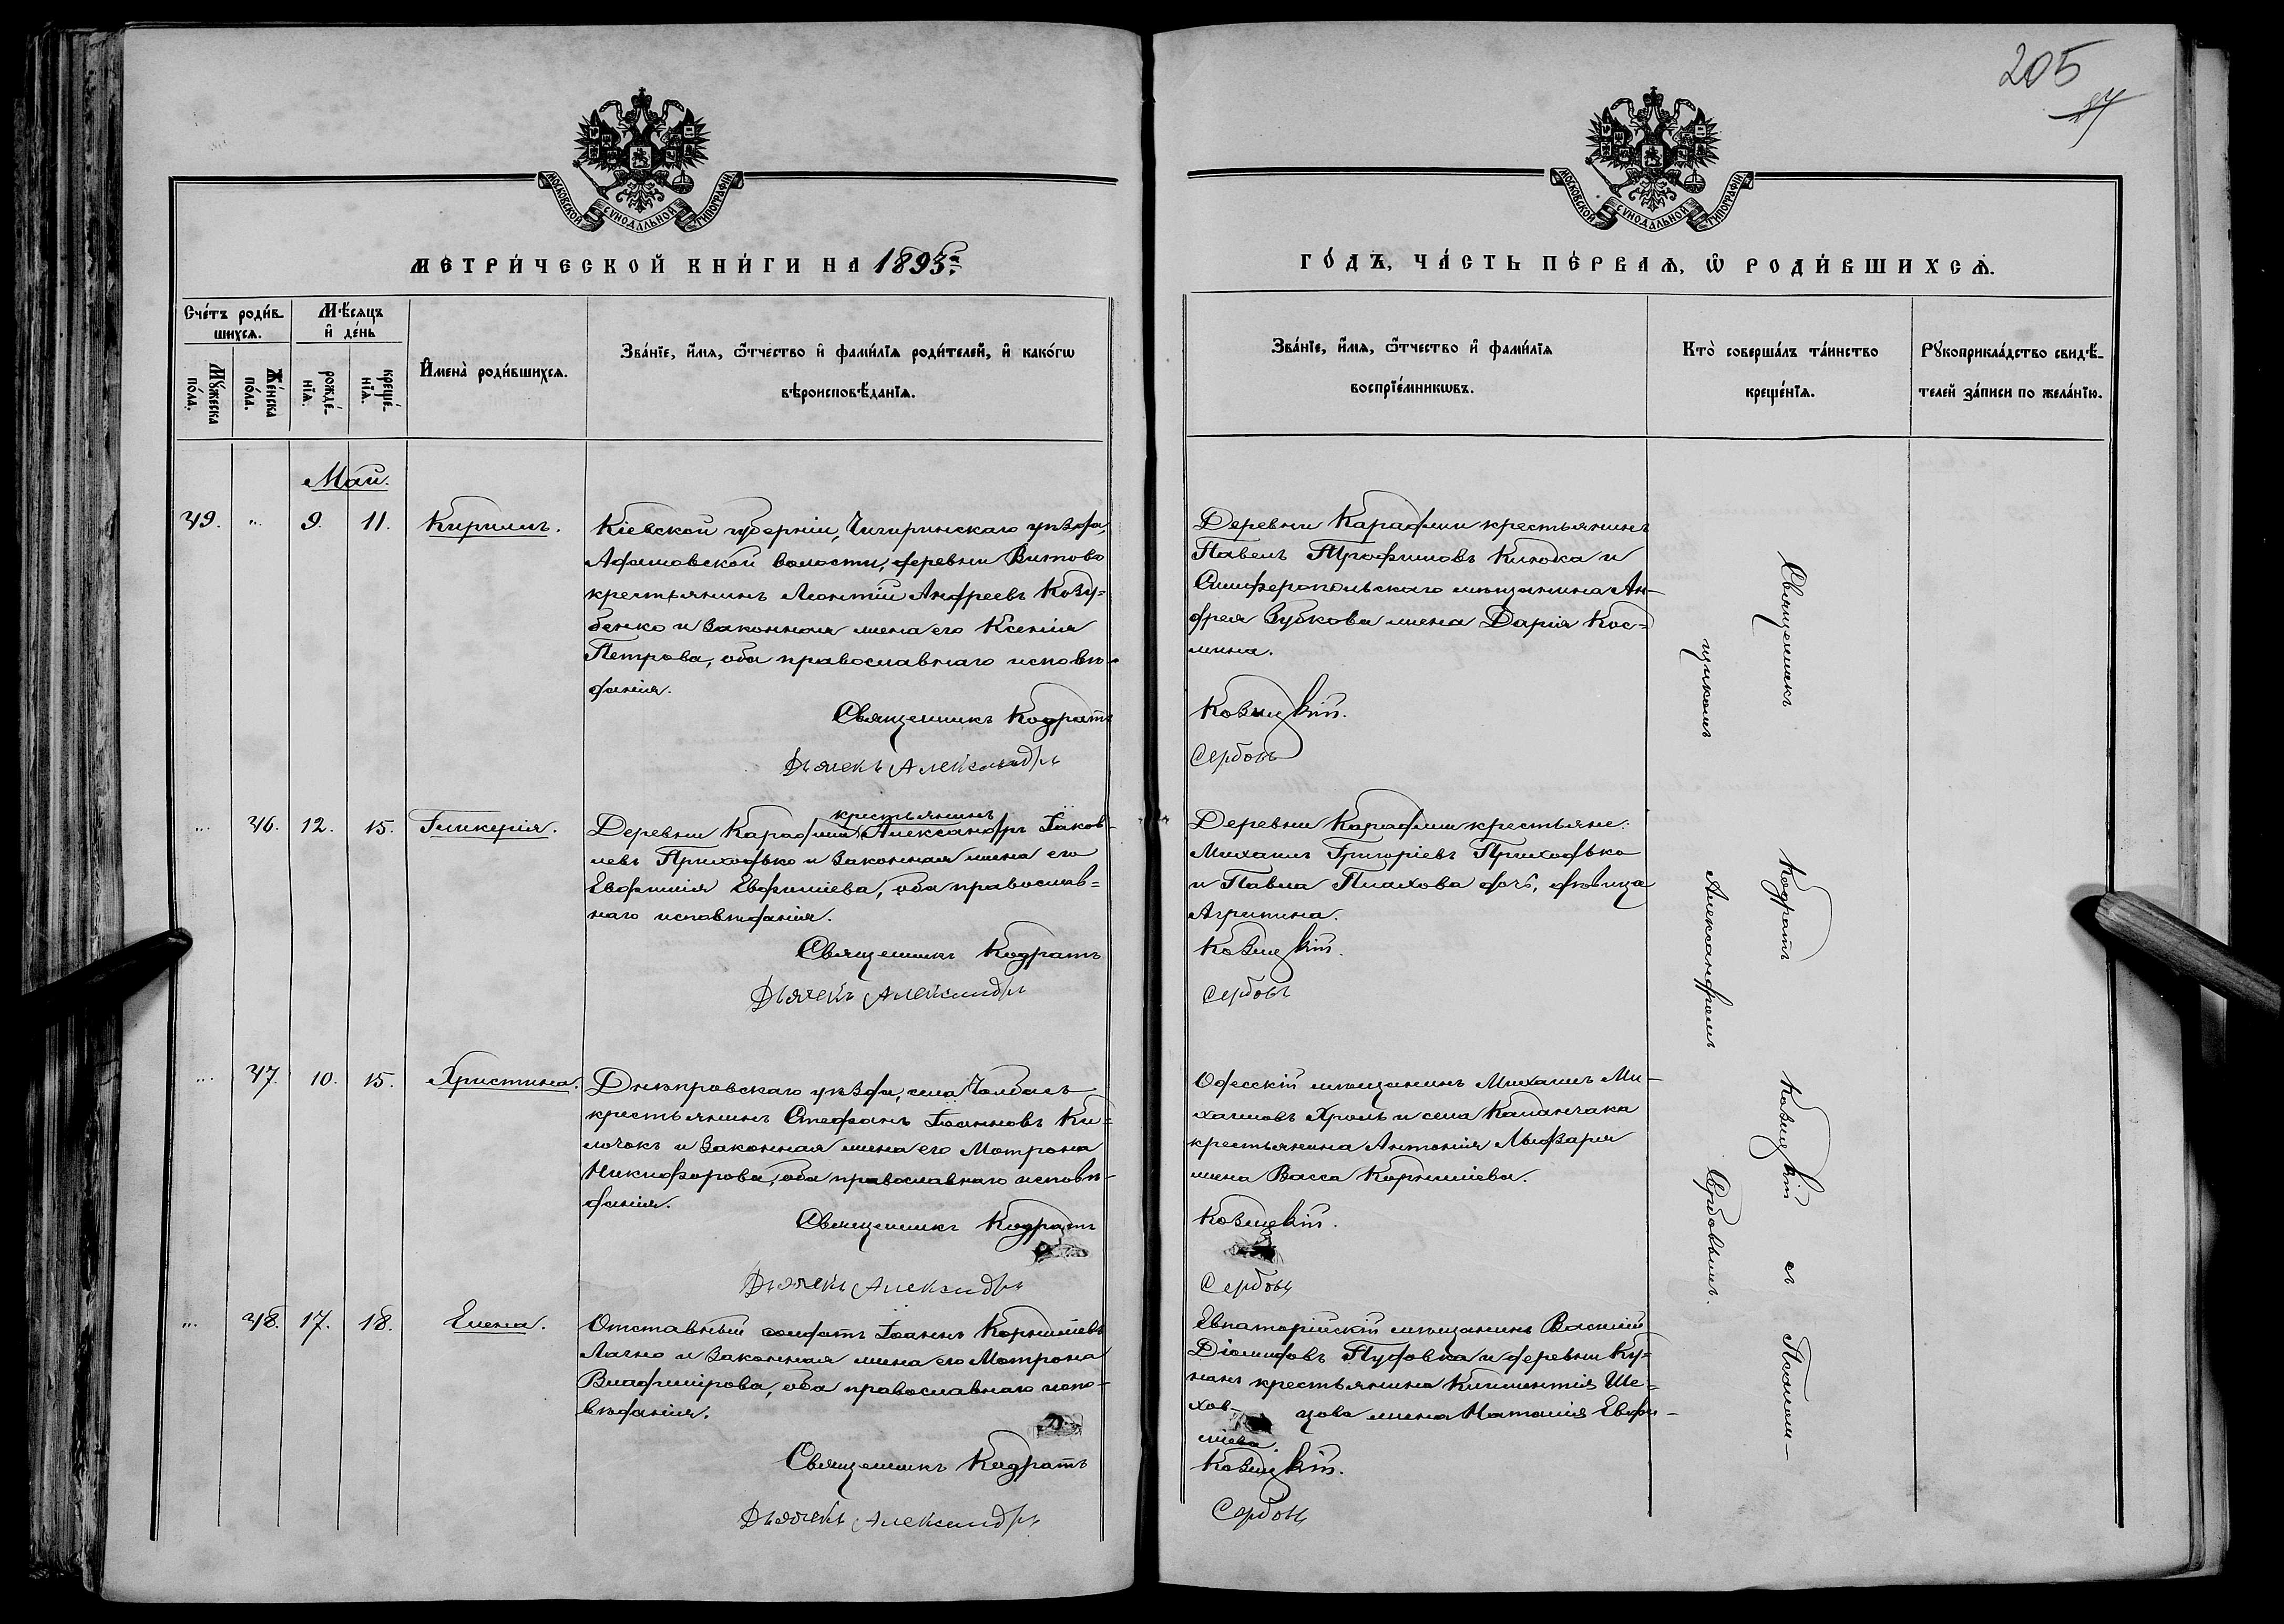 205
МОСКОВСКОЙ СѴНОДАЛЬНОЙ ТИПОГРАФІИ
МОСКОВСКОЙ СѴНОДАЛЬНОЙ ТИПОГРАФІИ
МЕТРИ́ЧЕСКОЙ КНИ́ГИ НА 1893й
ГО́ДЪ, ЧА́СТЬ ПЕ́РВАѦ, Ѡ҆ РОДИ́ВШИХСѦ.
Сче́тъ роди́в-
шихсѧ.
Мꙋ́жеска по́ла.
Же́нска по́ла.
Мѣ́сѧцъ
и҆ де́нь
рожде́-
нїѧ.
креще́-
нїѧ.
И҆мена̀ роди́вшихсѧ.
Зва́нїе, и҆́мѧ, ѻ҆́тчество и҆ фами́лїѧ роди́телей, и҆ како́гѡ
вѣроисповѣ́данїѧ.
Зва́нїе, и҆́мѧ, ѻ҆́тчество и҆ фами́лїѧ
воспрїе́мникѡвъ.
Кто̀ соверша́лъ та́инство
креще́нїѧ.
Рꙋкоприкла́дство свидѣ́-
телей за́писи по жела́нїю.
Май.
39. „ 9. 11. Кириллъ.
Кіевской губерніи, Чигиринскаго уѣзда,
Адамовской волости, деревни Витово
крестьянинъ Леонтій Андреевъ Козу=
бенко и законная жена его Ксенія
Петрова, оба православнаго исповѣ-
данія.
Священникъ Кодратъ
Дьячекъ Александръ
Деревни Караджи крестьянинъ
Павелъ Трофимовъ Килочка и
Симферопольскаго мѣщанина Ан-
дрея Зубкова жена Дарія Кос=
мина.
Козицкій.
Сербовъ
„ 36. 12. 15. Гликерія.
крестьянинъ
Деревни Караджи Александръ Іаков-
левъ Приходько и законная жена его
Евфимія Евфиміева, оба православ=
наго исповѣданія.
Священникъ Кодратъ
Дьячекъ Александръ
Деревни Караджи крестьяне:
Михаилъ Григоріевъ Приходько
и Павла Плахова дочь, дѣвица
Агрипина.
Козицкій.
Сербовъ
„ 37. 10. 15. Христина.
Днѣпровскаго уѣзда, села Чалбасъ
крестьянинъ Стефанъ Іоанновъ Ки=
лочокъ и законная жена его Мотрона
Никифорова, оба православнаго исповѣ-
данія.
Священникъ Кодратъ
Дьячекъ Александръ
Одесскій мѣщанинъ Михаилъ Ми-
хаиловъ Кроль и села Каланчака
крестьянина Антонія
жена Васса Корниліева.
Козицкій.
Сербовъ
„ 38. 17. 18. Елена.
Отставный солдатъ Іоаннъ Корниліевъ
Лагно и законная жена его Мотрона
Владимірова, оба православнаго испо-
вѣданія.
Священникъ Кодратъ
Дьячекъ Александръ
Евпаторійскій мѣщанинъ Василій
Діомидовъ Пудовка и деревни Ку=
нанъ крестьянина Климентія Ше=
хов- цова жена Наталія Евфи-
міева.
Козицкій.
Сербовъ
Священникъ Кодратъ Козицкій съ Псалом-
щикомъ Александромъ Сербовымъ.